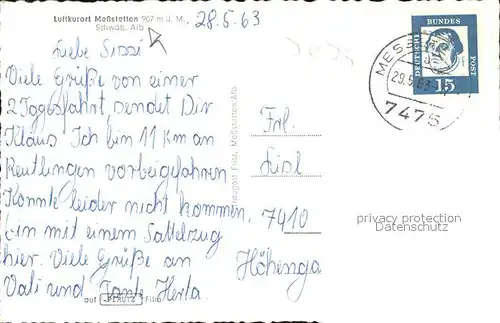 Luftkurort Meßstetten 907 m ü. M.
Schwäb. Alb
28.5.63
Liebe Sissi
Viele Grüße von einer
2 Tagesfahrt, sendet Dir
Klaus Ich bin 11 km an
Reutlingen vorbeigefahren
Konnte leider nicht kommen,
bin mit einem Sattelzug
hier. Viele Grüße an
Vati und Tante Herta.
auf PERUTZ Film
Meßstetten Alb
Frl.
7410
DEUTSCHE BUNDESPOST
15
MESS
29.5.63
7475
privacy protection
Datenschutz